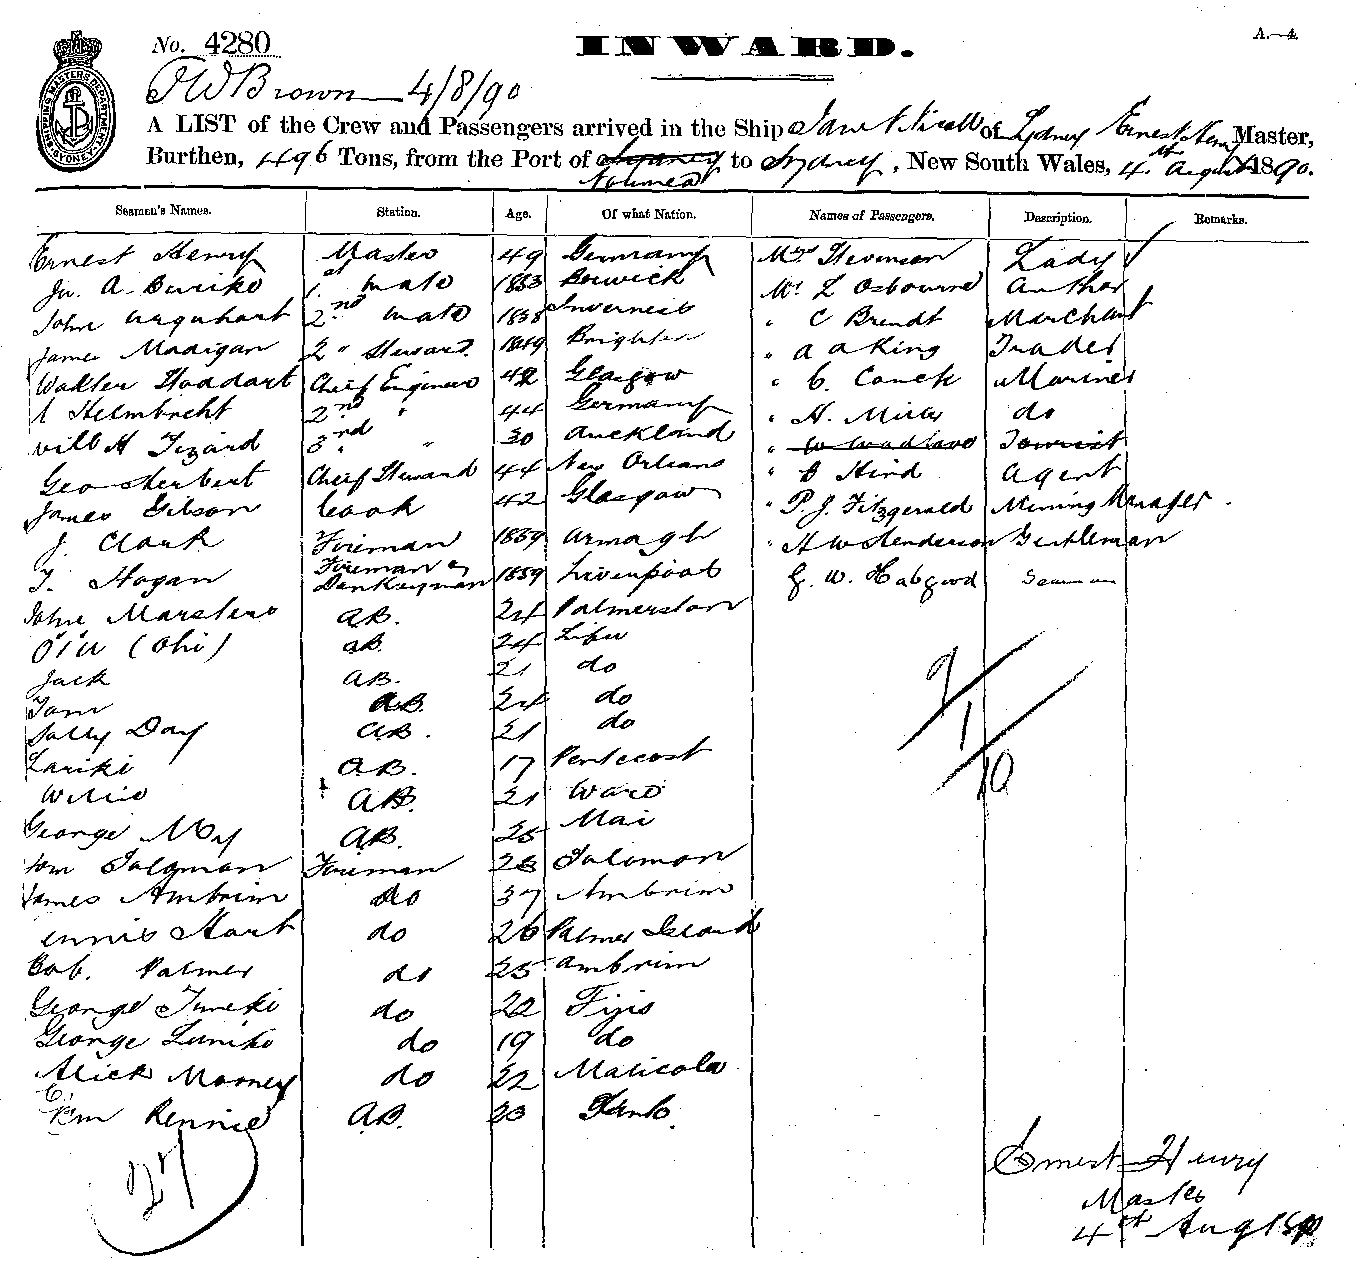 No. 4280
INWARD.
A.—4.
SHIPPING MASTERS DEPARTMENT SYDNEY
Brown 4/8/90
A LIST of the Crew and Passengers arrived in the Ship Janet Nicoll of Sydney Ernest Henry Master,
Burthen, 496 Tons, from the Port of Sydney Noumea to Sydney, New South Wales, 4th August 1890.
Seamen's Names. Station. Age. Of what Nation. Names of Passengers. Description. Remarks.
Ernest Henry Master 49 Germany Mrs Stevenson Lady
A 1st mate 1853 Berwick Mr L Osbourne Author
John Urquhart 2nd mate 1838 Inverness " C Brendt Merchant
James Madigan 2" Steward 1869 Brighton " A A King Trader
Walter Stoddart Chief Engineer 42 Glasgow " C. Mariner
Helmbrecht 2nd " 44 Germany " H. do
Will H Tizard 3rd " 30 Auckland " W Tourist
Geo Herbert Chief Steward 44 New Orleans " Hird Agent
James Gibson Cook 42 Glasgow " P. J. Fitzgerald Mining Manager
J. Clark Fireman 1859 Armagh " H W Henderson Gentleman
T. Hogan Fireman & Donkeyman 1859 Liverpool G. W. Habgood
John A.B. 24 Palmerston
(Ohi) A.B. 24 Lifu
Jack A.B. 21 do
Tom A.B. 24 do
Sally Day A.B. 21 do
Lariki A.B. 17 Pentecost
Willie A.B. 21
George A.B. 25
Tom Fireman Solomon
James Ambrim do 37 Ambrim
Hart do 26 Palmer Island
Bob. Palmer do 25 Ambrim
George do 22 Fijis
George do 19 do
Alick Mooney do 22 Malicola
Rennie A.B.
9/1/10
27
Ernest Henry
Master
4th Aug 1890